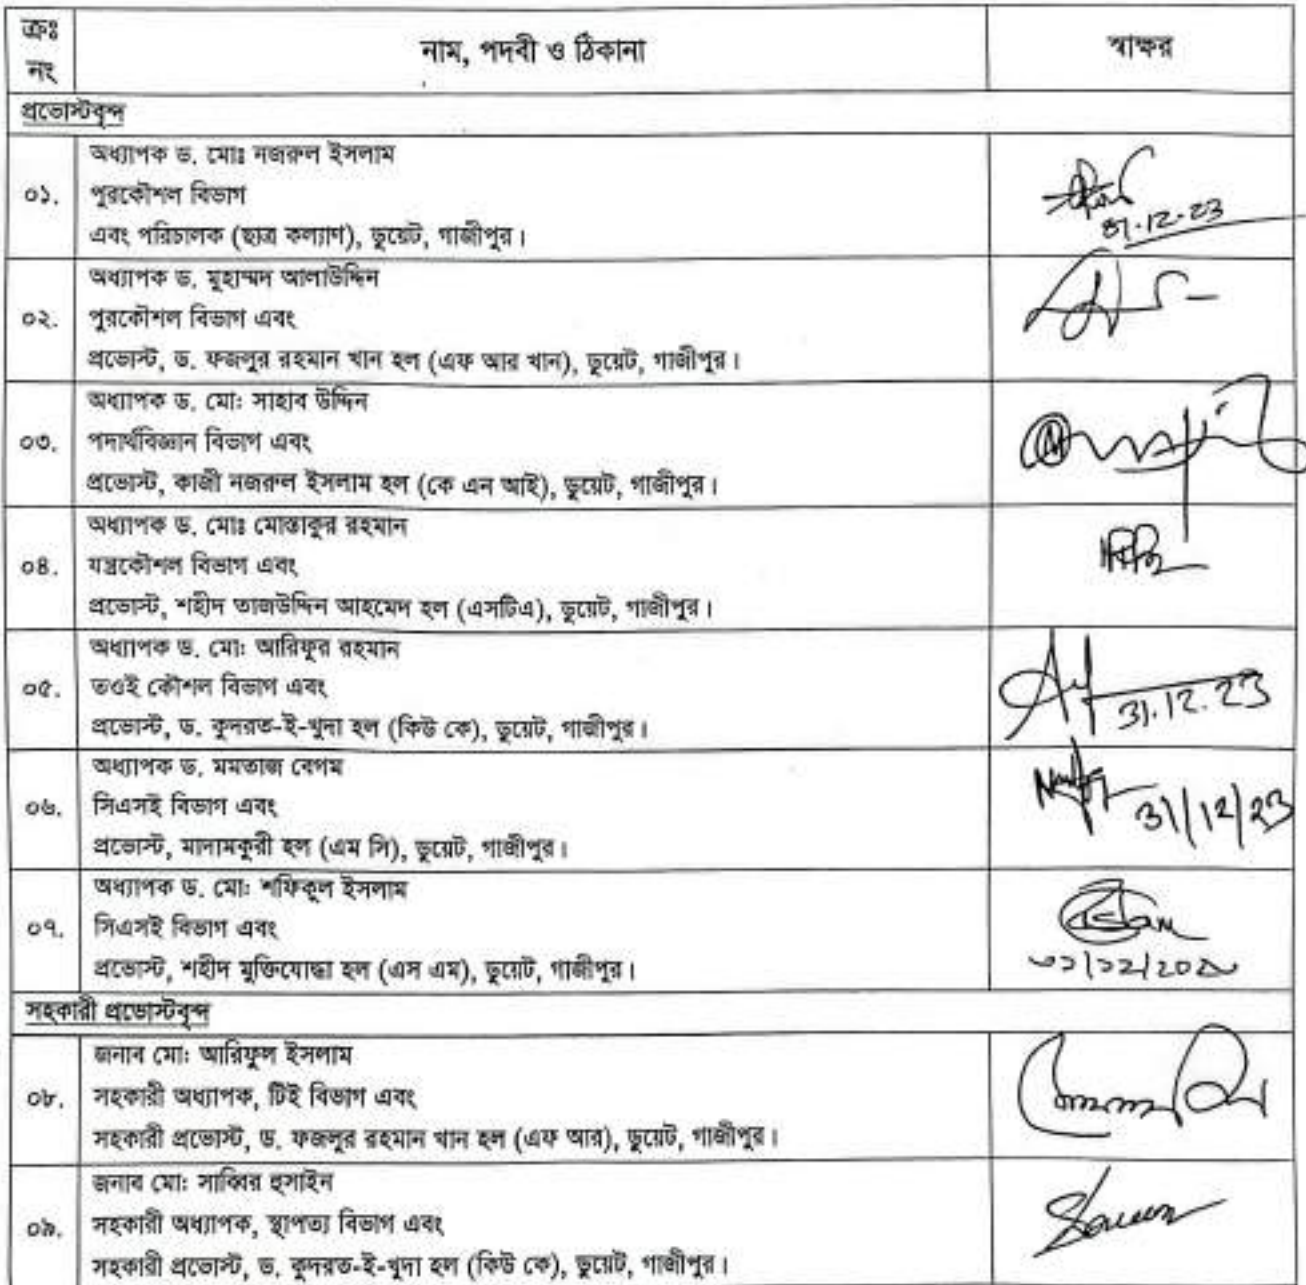 ক্রঃ নং
নাম, পদবী ও ঠিকানা
স্বাক্ষর
প্রভোস্টবৃন্দ
০১.
অধ্যাপক ড. মোঃ নজরুল ইসলাম
পুরকৌশল বিভাগ
এবং পরিচালক (ছাত্র কল্যাণ), ডুয়েট, গাজীপুর।
31-12-23
০২.
অধ্যাপক ড. মুহাম্মদ আলাউদ্দিন
পুরকৌশল বিভাগ এবং
প্রভোস্ট, ড. ফজলুর রহমান খান হল (এফ আর খান), ডুয়েট, গাজীপুর।
০৩.
অধ্যাপক ড. মো: সাহাব উদ্দিন
পদার্থবিজ্ঞান বিভাগ এবং
প্রভোস্ট, কাজী নজরুল ইসলাম হল (কে এন আই), ডুয়েট, গাজীপুর।
০৪.
অধ্যাপক ড. মোঃ মোস্তাকুর রহমান
যন্ত্রকৌশল বিভাগ এবং
প্রভোস্ট, শহীদ তাজউদ্দিন আহমেদ হল (এসটিএ), ডুয়েট, গাজীপুর।
০৫.
অধ্যাপক ড. মো: আরিফুর রহমান
তওই কৌশল বিভাগ এবং
প্রভোস্ট, ড. কুদরত-ই-খুদা হল (কিউ কে), ডুয়েট, গাজীপুর।
31.12.23
০৬.
অধ্যাপক ড. মমতাজ বেগম
সিএসই বিভাগ এবং
প্রভোস্ট, মাদামকুরী হল (এম সি), ডুয়েট, গাজীপুর।
31/12/23
০৭.
অধ্যাপক ড. মো: শফিকুল ইসলাম
সিএসই বিভাগ এবং
প্রভোস্ট, শহীদ মুক্তিযোদ্ধা হল (এস এম), ডুয়েট, গাজীপুর।
সহকারী প্রভোস্টবৃন্দ
০৮.
জনাব মো: আরিফুল ইসলাম
সহকারী অধ্যাপক, টিই বিভাগ এবং
সহকারী প্রভোস্ট, ড. ফজলুর রহমান খান হল (এফ আর), ডুয়েট, গাজীপুর।
০৯.
জনাব মো: সাব্বির হুসাইন
সহকারী অধ্যাপক, স্থাপত্য বিভাগ এবং
সহকারী প্রভোস্ট, ড. কুদরত-ই-খুদা হল (কিউ কে), ডুয়েট, গাজীপুর।